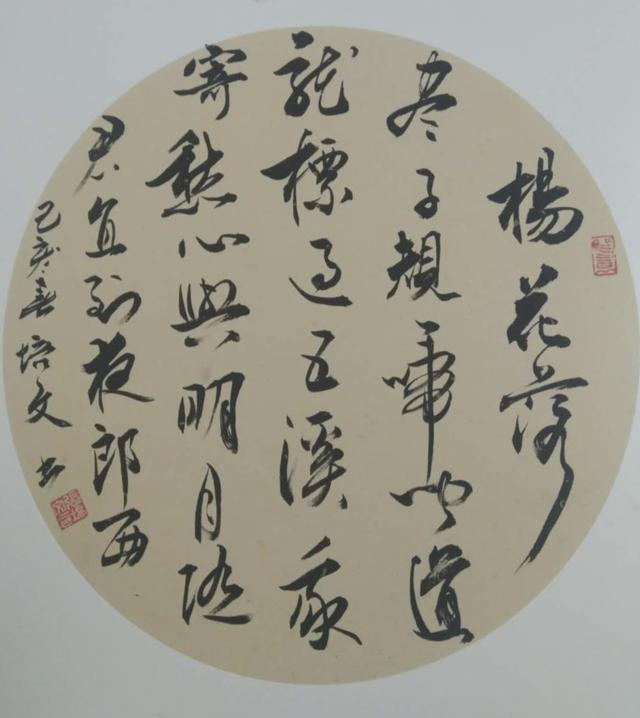 楊花落
尽子規啼聞道
龍標過五溪我
寄愁心與明月随
君直到夜郎西
己亥春培文書